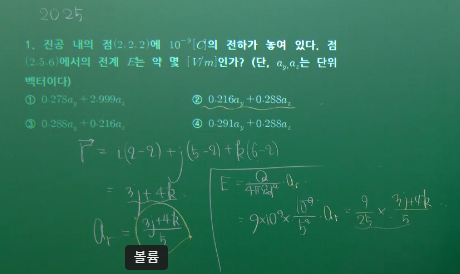 2025
1. 진공 내의 점(2.2.2)에 10⁻⁹[C]의 전하가 놓여 있다. 점
(2.5.6)에서의 전계 E는 약 몇 [V/m]인가? (단, a_y, a_z는 단위
벡터이다)
① 0.278a_y + 2.999a_z ② 0.216a_y + 0.288a_z
③ 0.288a_y + 0.216a_z ④ 0.291a_y + 0.288a_z
r = i(2-2) + j(5-2) + k(6-2)
= 3j + 4k
a_r = (3j+4k)/5
E = Q/(4πε₀r²) · a_r
= 9×10⁹ × 10⁻⁹/5² · a_r = 9/25 × (3j+4k)/5
볼륨